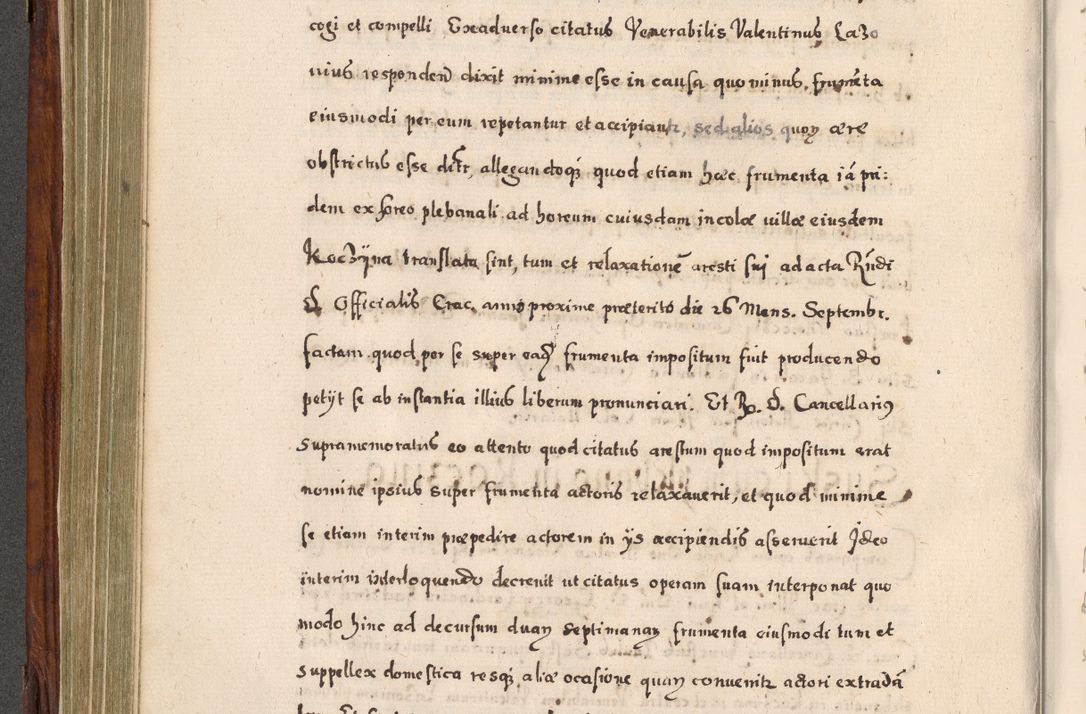 cogi et compelli. Exaduerso citatus Venerabilis Valentinus Lazo
uius respondeñ dixit minime esse in causa quo minus frumēta
eiusmodi per eum repetantur et accipiantr, sed alios quoꝝ ære
obstrictus esse ditr, allegandoqꝫ quod etiam hæc frumenta iā pri:
dem ex horeo plebanali ad horeum cuiusdam incolæ uillæ eiusdem
Koczÿna translata sint, tum et relaxationē aresti sui ad acta Rndi
D. Officialis Crac. anno proxime præterito die 26 Mens. Septembr.
factam quod per se super eaꝝ frumenta impositum fuit producendo
petijt se ab instantia illius liberum pronunciari. Et R. D. Cancellariꝰ
supramemoratus eo attento quod citatus arestum quod impositum erat
nomine ipsius super frumenta actoris relaxauerit, et quod minime
se etiam interim præpedire actorem in ÿs accipiendis asseruerit Ideo
interim interloquendo decreuit ut citatus operam suam interponat quo
modo hinc ad decursum duaꝝ septimanaꝝ frumenta eiusmodi tum et
suppellex domestica resqꝫ aliæ ocasione quaꝝ conuenitr actori extradā